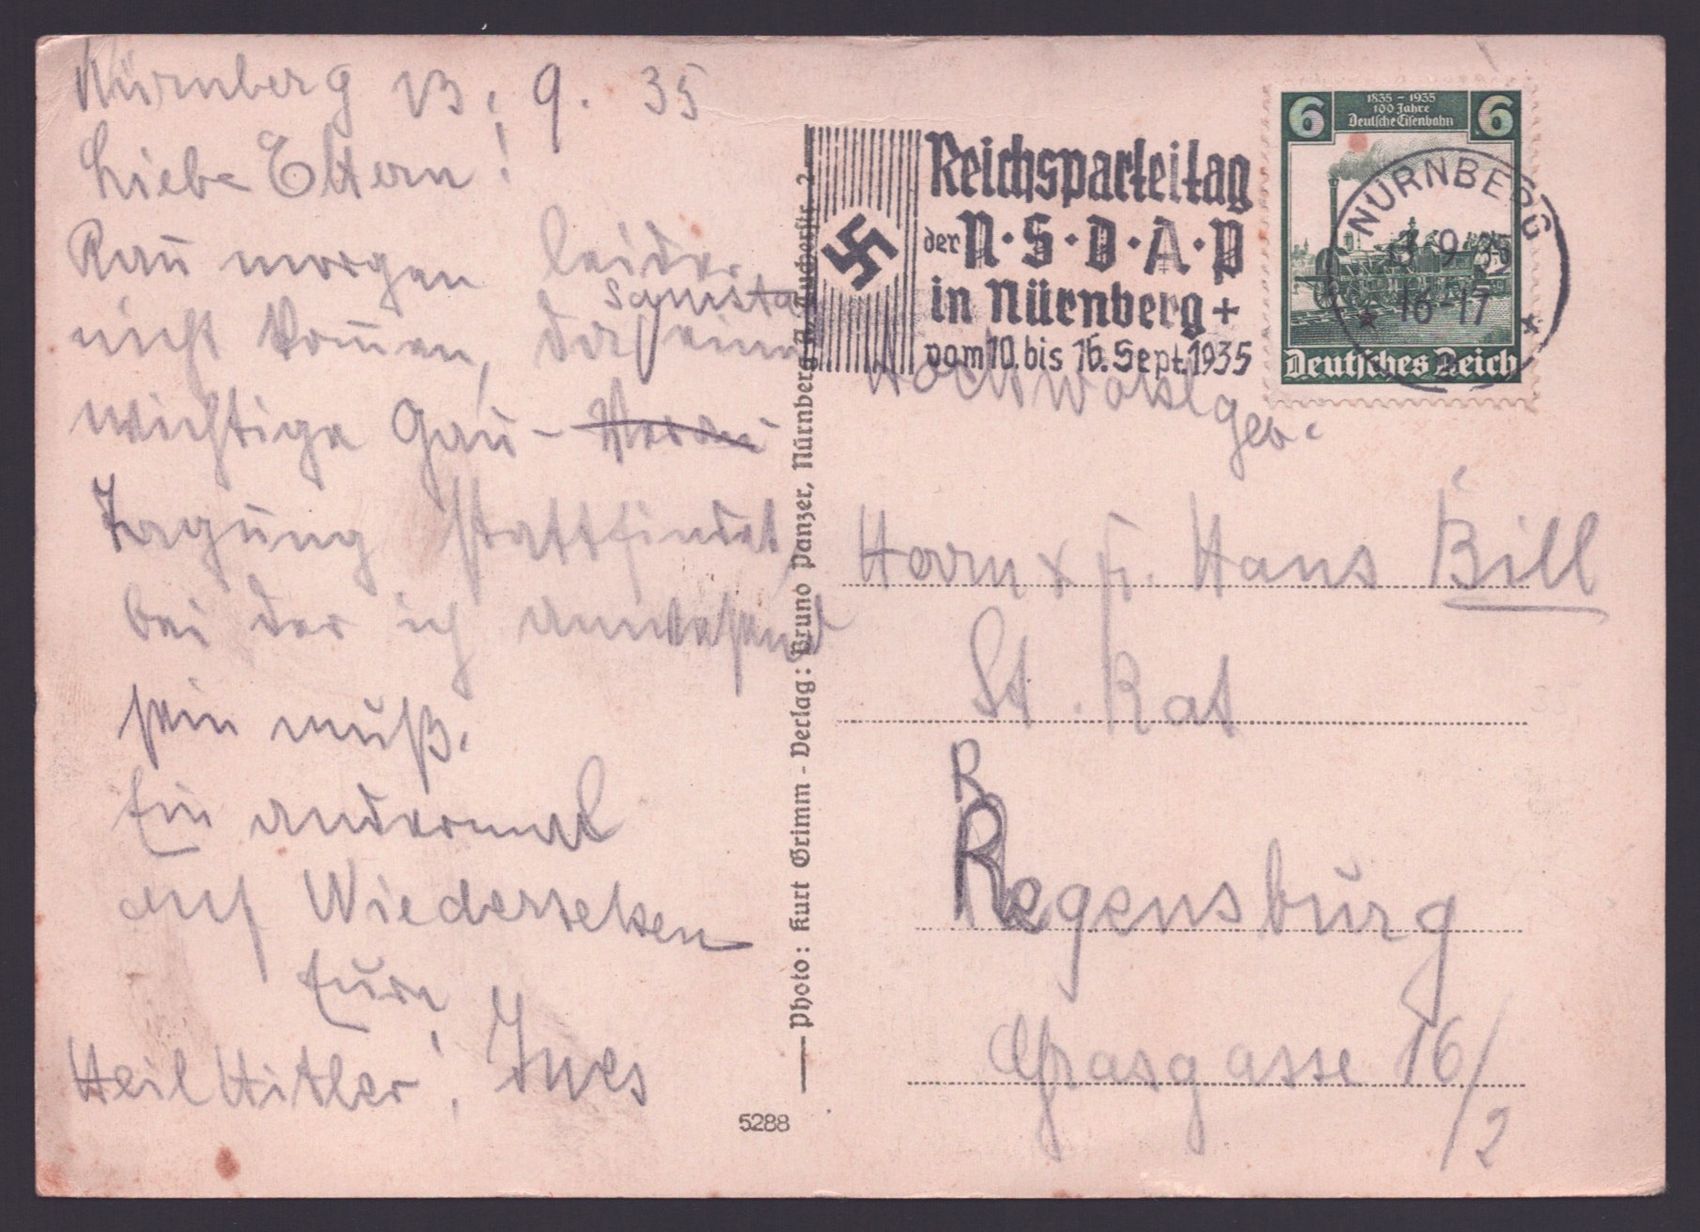 Nürnberg 13. 9. 35
Liebe Eltern!
Kañ morgen leider
Samstag
nicht kom̄en, da eine
wichtige Gau-
Tagung stattfindet
bei der ich anwesend
sein muß.
Ein andermal
auf Wiedersehen
Eure
Heil Hitler! Ines
Photo: Kurt Grimm - Verlag: Bruno Panzer, Nürnberg A, Tucherstr. 2
5288
Reichsparteitag
der N·S·D·A·P
in Nürnberg +
vom 10. bis 16. Sept. 1935
6 1835 - 1935 6
100 Jahre
Deutsche Eisenbahn
Deutsches Reich
NÜRNBERG
13 9 35
16-17
2
Hochwohlgeb.
Herrn x F. Hans Bill
St. Rat
R
Regensburg
Grasgasse 16/2